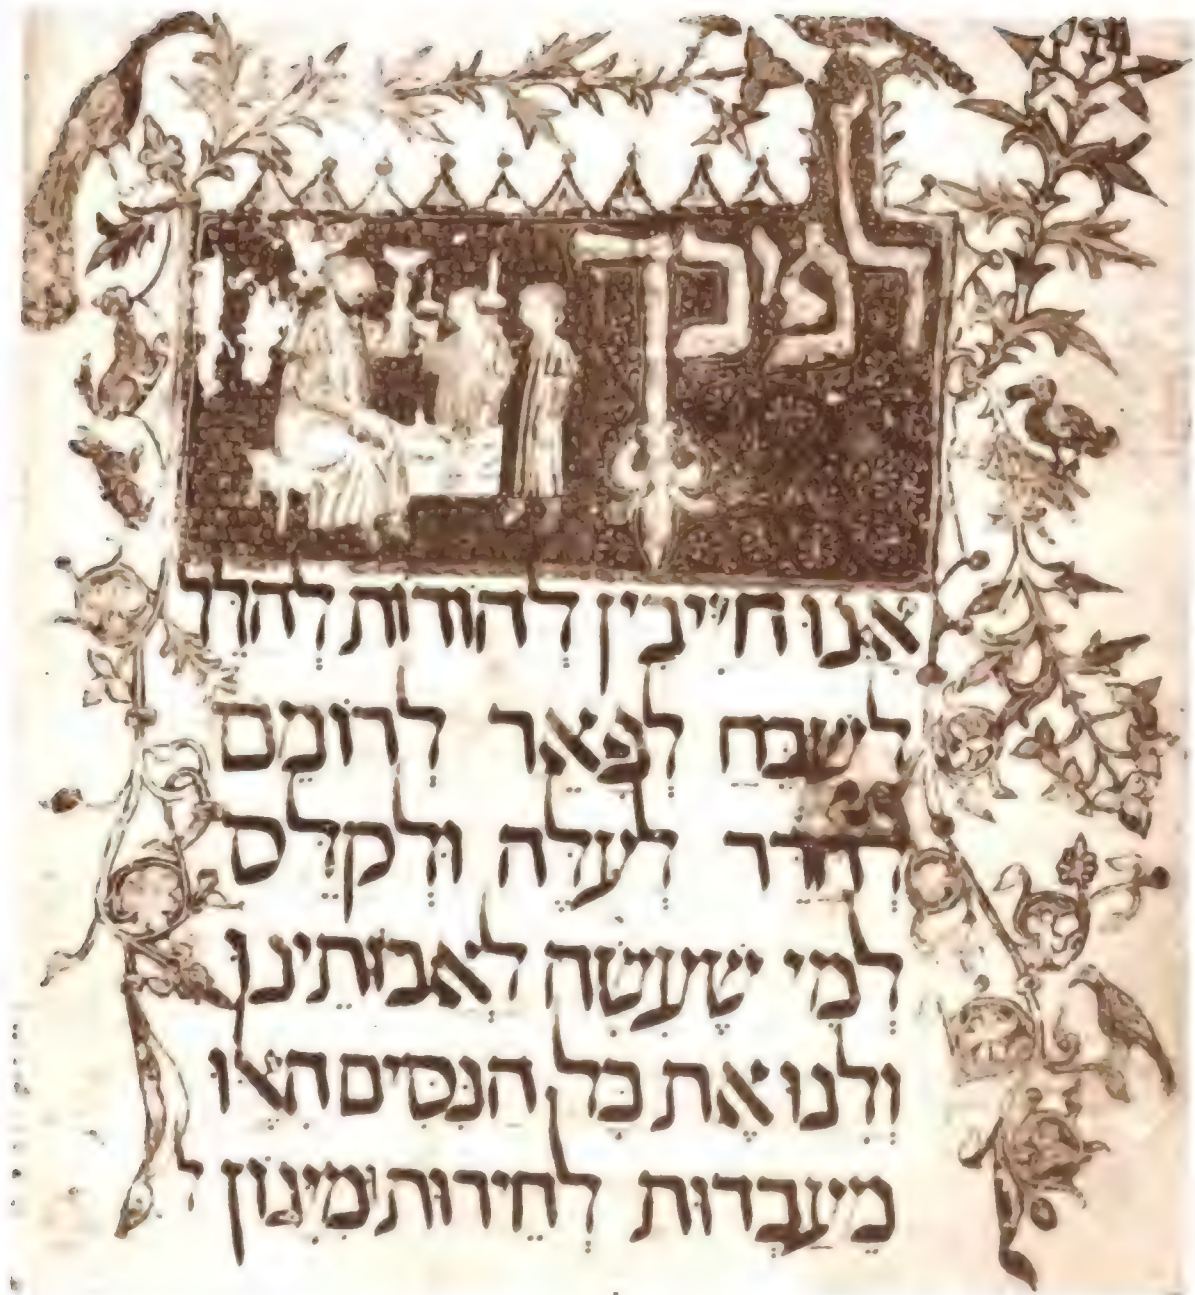 לפיכך
אנו חייבין להודות להלל
לשבח לפאר לרומם
להדר לעלה ולקלס
למי שעשה לאבותינו
ולנו את כל הנסים האלו
מעבדות לחירות ומיגון